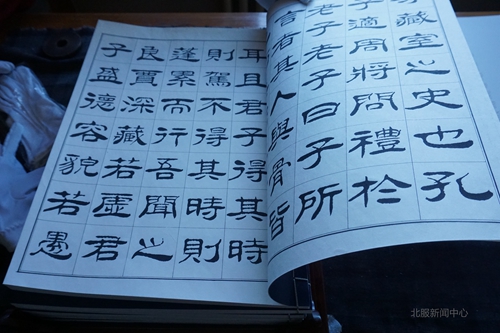 藏室之史也孔
子適周將問禮於
老子老子曰子所
言者其人與骨皆
耳且君子得其時
則駕不得其時則
蓬累而行吾聞之
良賈深藏若虛君
子盛德容貌若愚
北服新闻中心